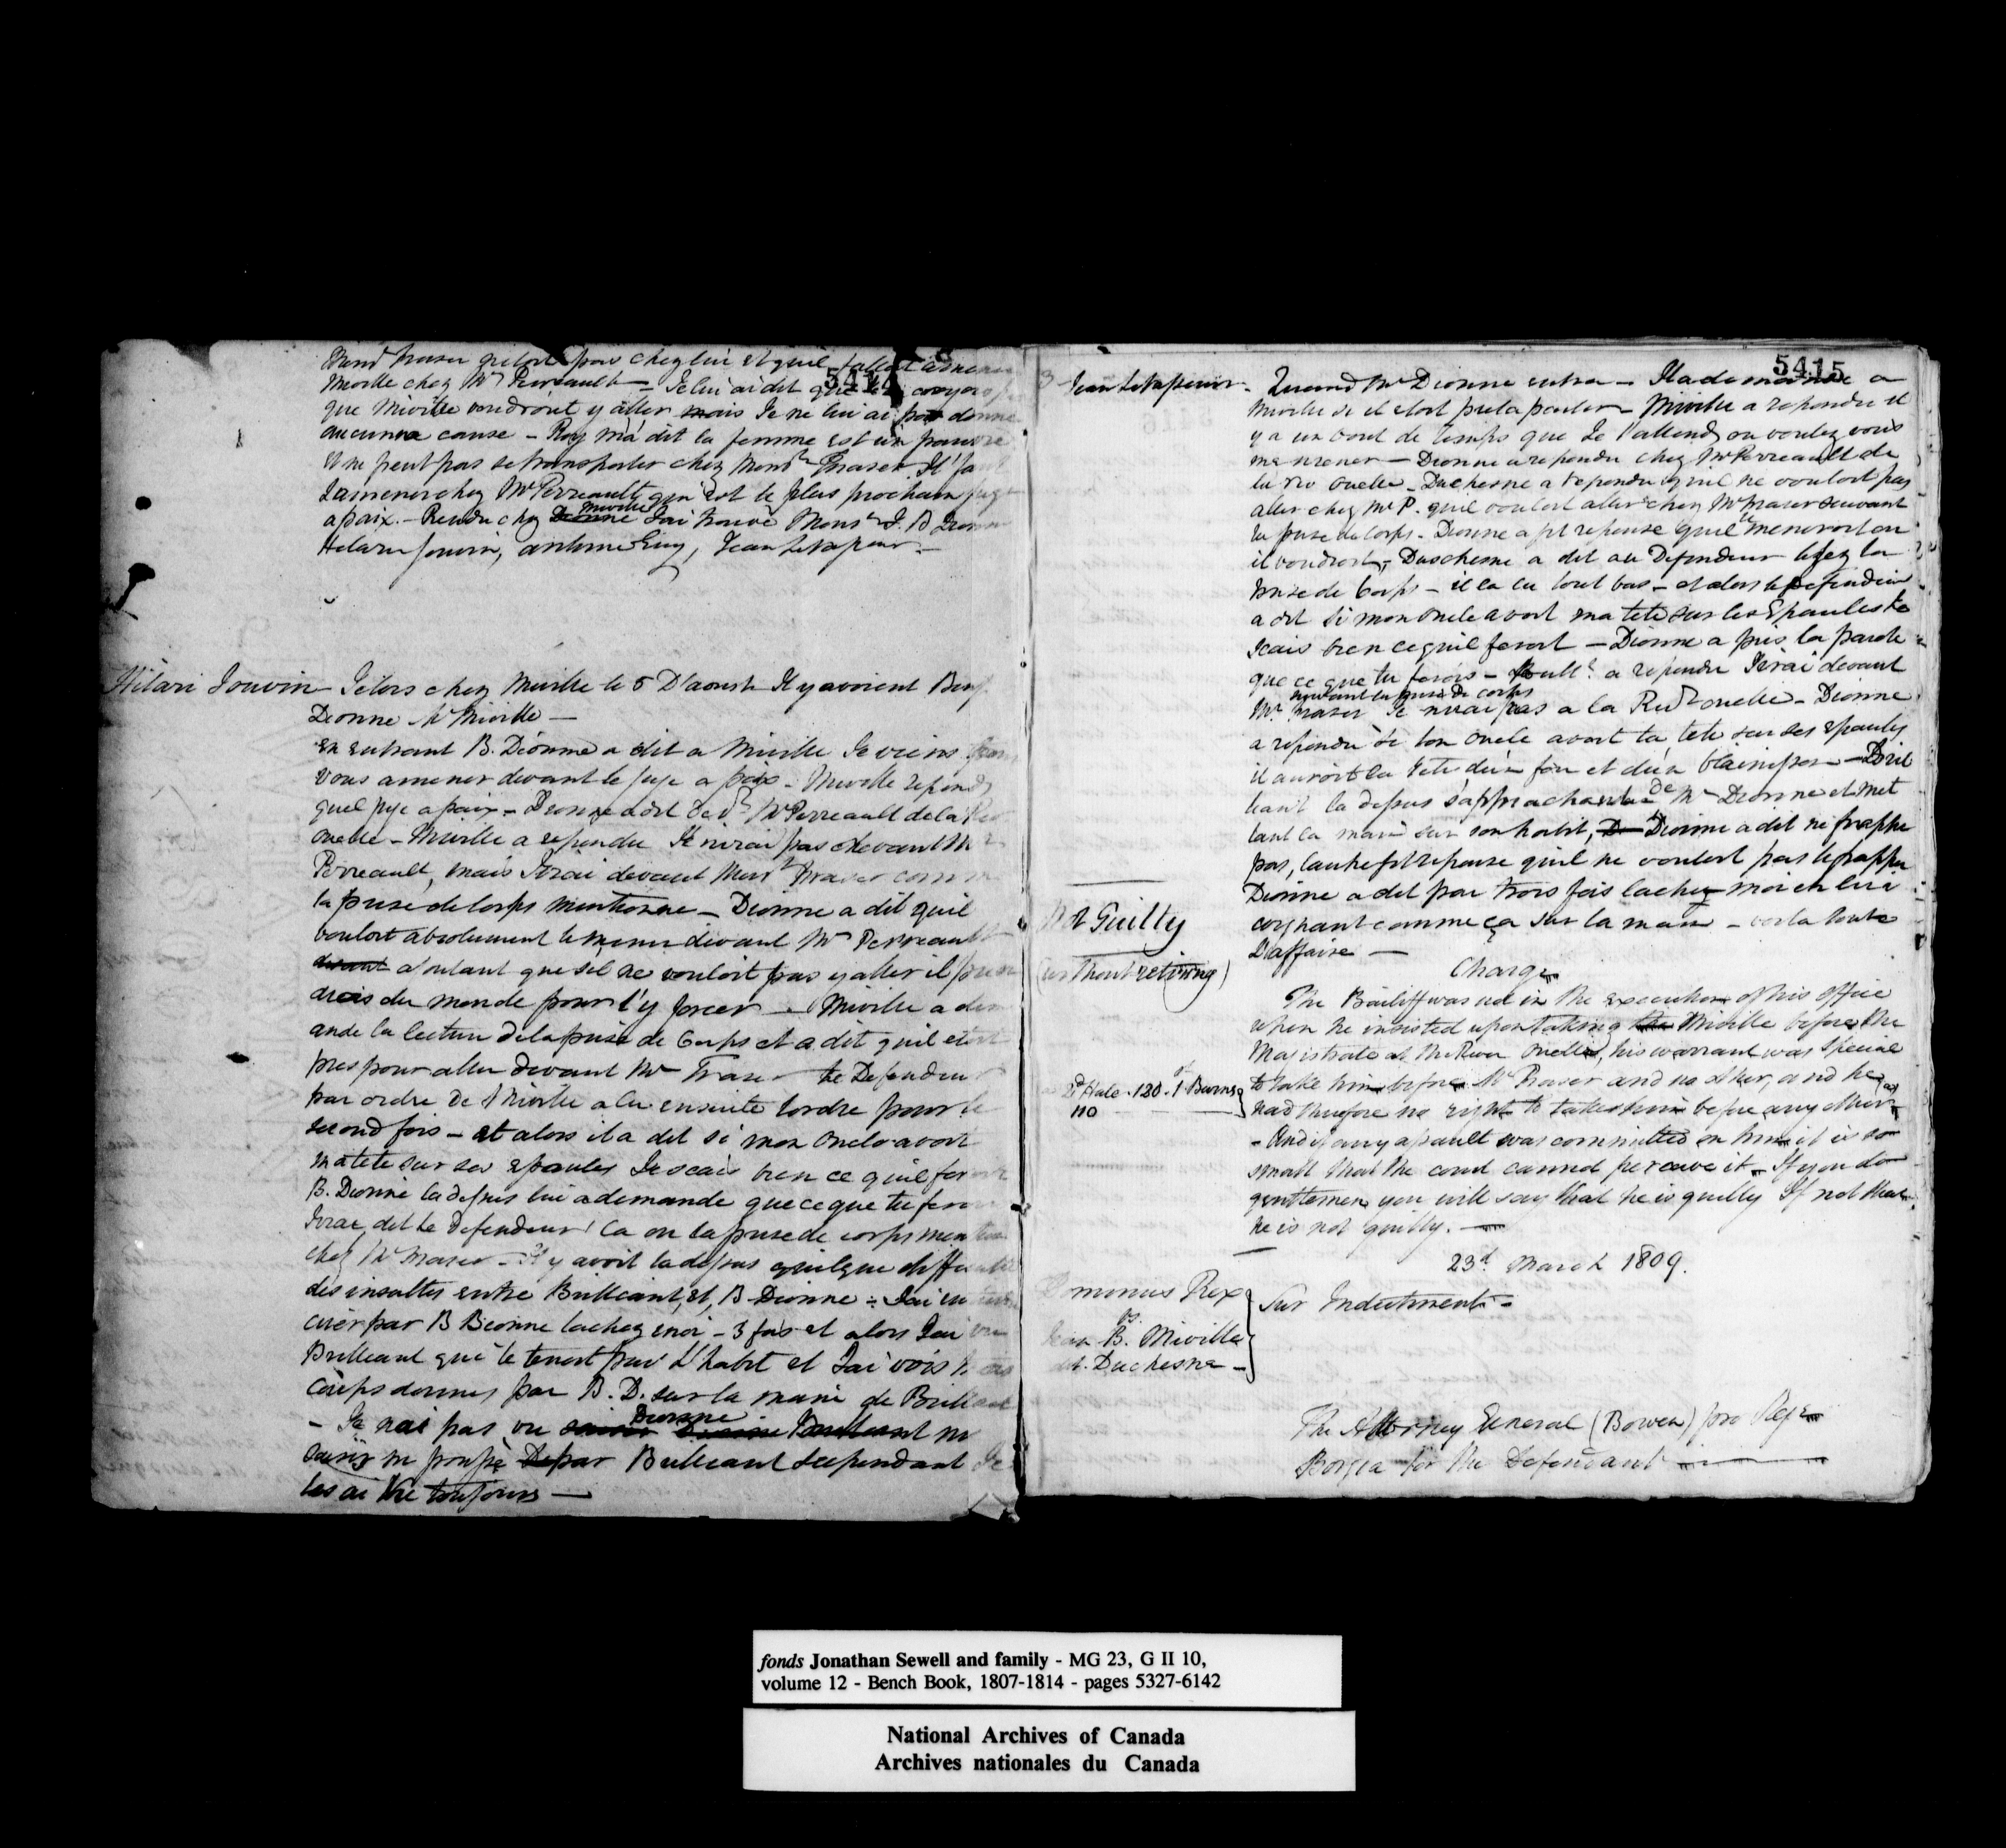 5414
Mons.r Fraser n'etoit pas chez lui et quil falloit amener
Miville chez Mr Perreault — Je lui ai dit que je croyois
que Miville voudroit y aller mais Je ne lui ai pas donne
aucune cause — Roy m'a dit la femme est un pauvre
il ne peut pas se transporter chez Monsr Fraser Il faut
Lamener chez Mr Perreault qui est le plus prochain juge
a paix. — Rendu chez Dionne Miville Jai trouvé Monsr J. B Dionne
Hilari Jouvin, Jean Levasseur —
Hilari Jouvin — J'etois chez Miville le 5 D'aoust Il y avoient Benj.
Dionne Mr Miville —
En entrant B. Dionne a dit a Miville Je viens pour
vous amener devant le juge a paix - Miville repond
quel juge a paix — Dionne a dit Mr Perreault de la Riv
Ouelle — Miville a repondu Je n'irai pas devant Mr
Perreault, mais J'irai devant Monsr Fraser comme
la prise de Corps mentionne — Dionne a dit quil
vouloit absolument le mener devant Mr Perreault
devant a'outant que sil ne vouloit pas y aller il pren
drois du monde pour l'y forcer — Miville a dem
ande la lecture de la prise de Corps et a dit quil etoit
pres pour aller devant Mr Fraser — Le Defendeur
par ordre de Miville a lu ensuite lordre pour le
second fois — et alors il a dit si mon oncle avoit
ma tete sur ses epaules Je scais bien ce quil feroit
B. Dionne la dessus lui a demande que ce que tu ferois
Jirai dit Le Defendeur la ou la prise de corps mentionne
chez Mr Fraser — Il y avoit la dessus quelque difficulte
des insultes entre Brilleant, et, B Dionne — Jai en
crier par B Dionne lachez moi — 3 fois et alors Jai vu
Brilleant qui le tenoit par L'habit et Jai vois
coups donnes par B. D. sur la main de Brilleant
— Je nai pas vu Dionne Brilleant ni
saisis ni frappé par Brilleant cependant Je
les ai Vu toujours —
5415
3 Jean Levasseur — Quand Mr Dionne entra — Il a demande a
Miville si il etoit pret a partir — Miville a repondu il
y a un bout de temps que Je l'attend, ou voulez vous
me mener — Dionne a repondu chez Mr Perreault de
la riv ouelle — Duchesne a repondu quil ne vouloit pas
aller chez Mr P. quil vouloit aller chez Mr Fraser suivant
la prise de corps — Dionne a fit reponse quil le meneroit ou
il voudroit — Duschesne a dit au Defendeur lisez la
prise de Corps — il la lu tout bas — et alors le Defendeur
a dit si mon oncle avoit ma tete sur les Epaules Je
scais bien ce quil feroit — Dionne a pris la parole
que ce que tu ferois — a repondu J'irai devant
suivant la prise de corps
Mr Fraser Je n'irai pas a la Rivr ouelle — Dionne
a repondu si ton oncle avoit ta tete sur ses epaules
il auroit la tete d'un fou et d'un — Bril
leant la dessus s'approchant de Mr Dionne et met
tant la main sur son habit, Dionne a dit ne frappe
pas, lautre fit reponse quil ne vouloit pas le frapper
Dionne a dit par trois fois lachez moi en lui
cognant comme ça sur la main — voila toute
L'affaire —
Not Guilty
(without retiring)
Charge
The Bailiff was not in the execution of his office
when he insisted upon taking the Miville before the
Magistrate at the River Ouelle, his warrant was special
to take him before Mr Fraser and no other, and he
had therefore no right to take him before any other
— And if any assault was committed on him it is so
small that the court cannot perceive it — If you do
gentlemen you will say that he is guilty If not that
he is not guilty. —
Ed Hale . 120 . Burns
110
23d March 1809.
Dominus Rex
vs
Jean B. Miville
dit Duchesne —
Sur Indictment —
The Attorney General (Bowen) pro Rege
Borgia for the Defendant —
fonds Jonathan Sewell and family - MG 23, G II 10,
volume 12 - Bench Book, 1807-1814 - pages 5327-6142
National Archives of Canada
Archives nationales du Canada